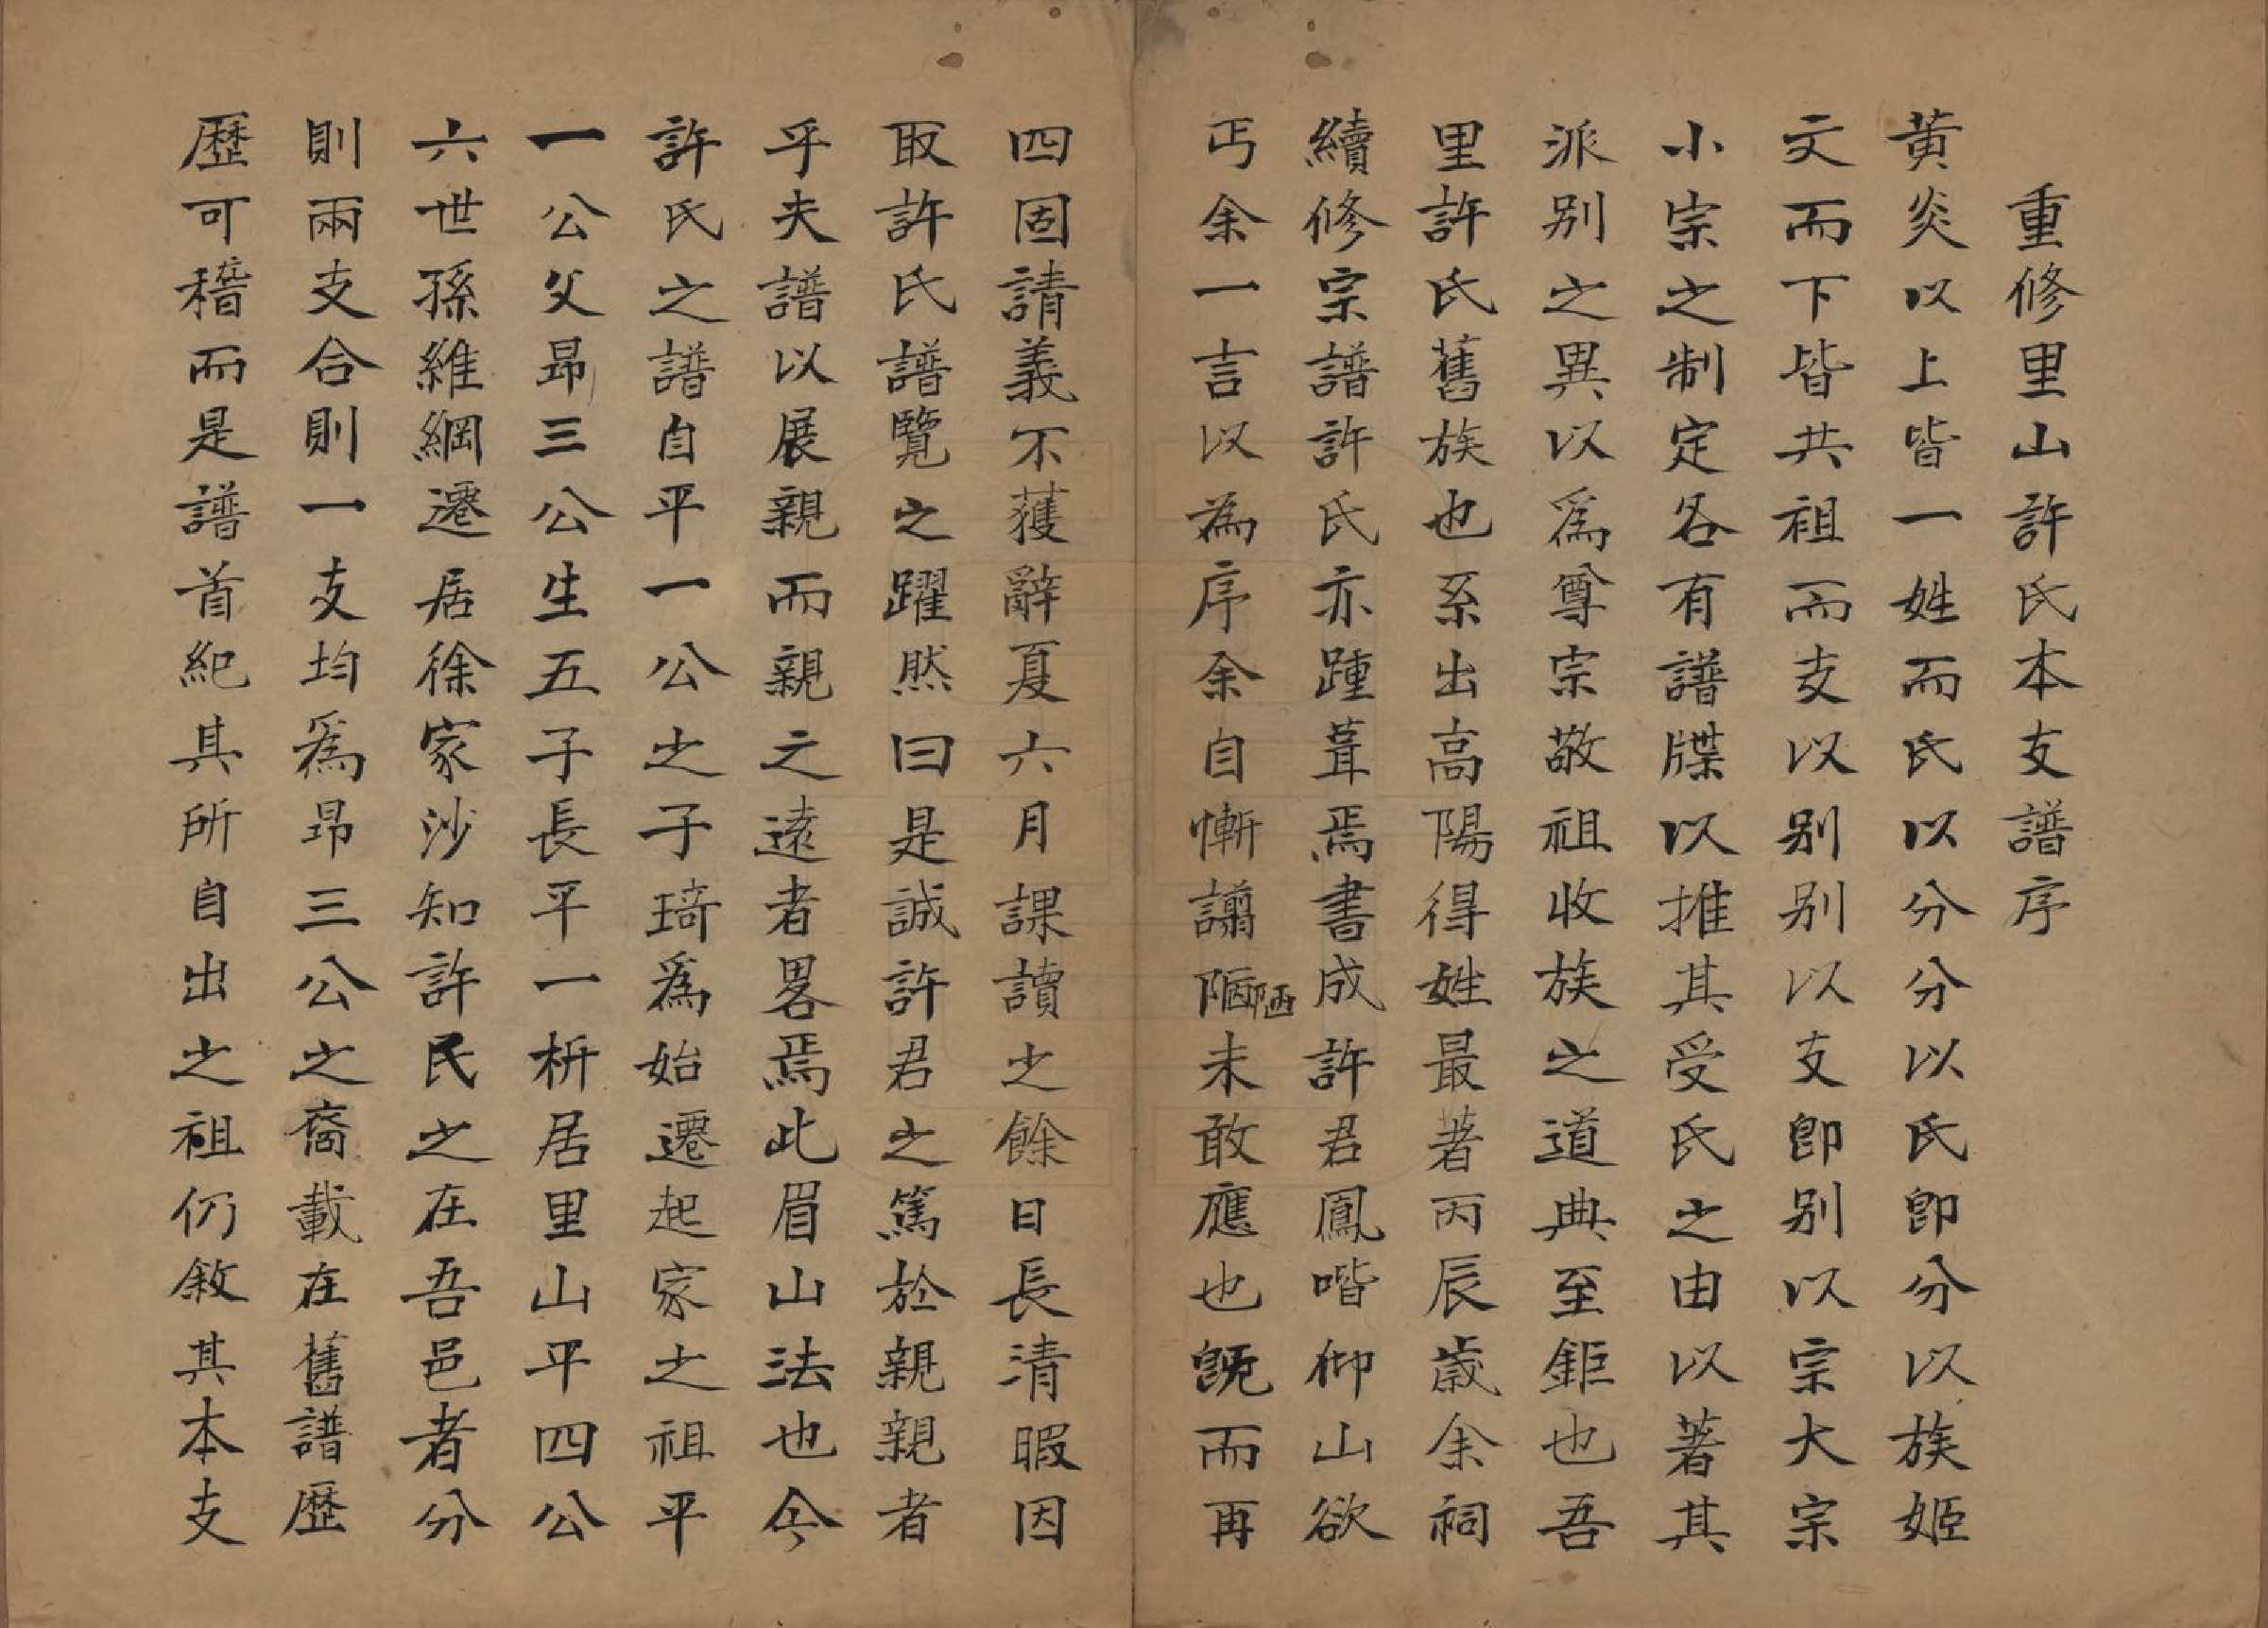 重修里山許氏本支譜序
黄炎以上皆一姓而氏以分分以氏即分以族姬
文而下皆共祖而支以别别以支即别以宗大宗
小宗之制定各有譜牒以推其受氏之由以著其
派别之異以爲尊宗敬祖收族之道典至鉅也吾
里許氏舊族也系出高陽得姓最著丙辰歲余祠
續修宗譜許氏亦踵葺焉書成許君鳳喈仰山欲
丐余一言以為序余自慚譾陋陋未敢應也既而再
四固請義不獲辭夏六月課讀之餘日長清暇因
取許氏譜覽之躍然曰是誠許君之篤於親親者
乎夫譜以展親而親之遠者畧焉此眉山法也今
許氏之譜自平一公之子琦爲始遷起家之祖平
一公父昂三公生五子長平一析居里山平四公
六世孫維綱遷居徐家沙知許民之在吾邑者分
則兩支合則一支均爲昂三公之裔載在舊譜歷
歷可稽而是譜首紀其所自出之祖仍敘其本支